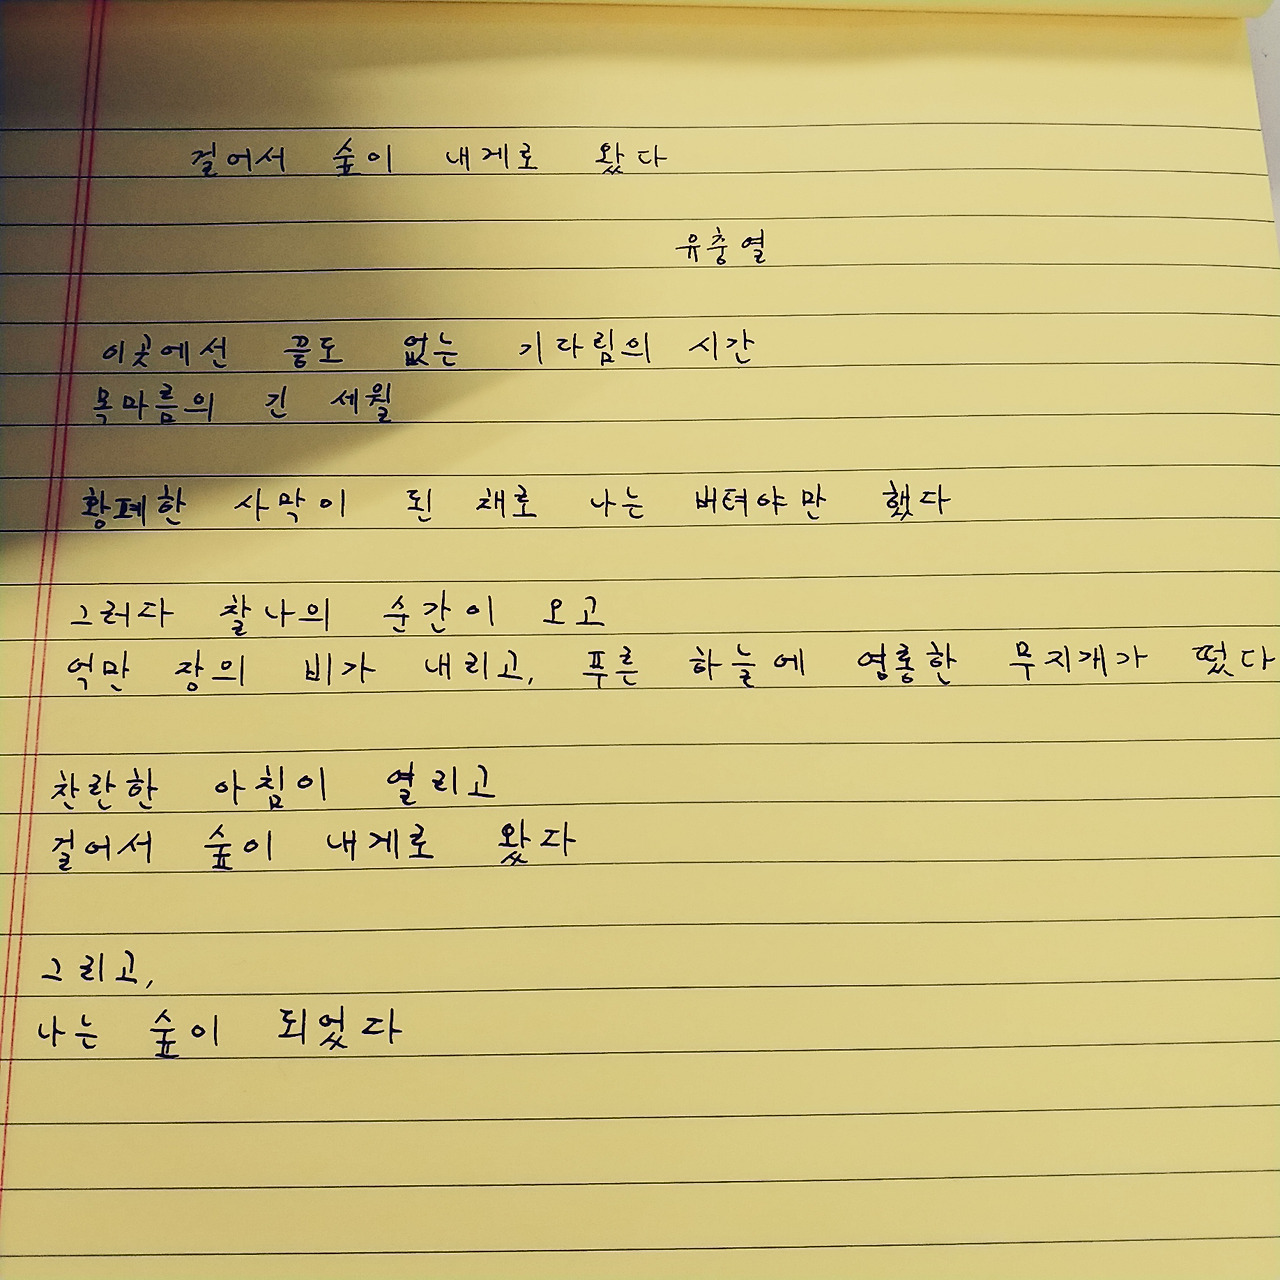 걸어서 숲이 내게로 왔다
유충열
이곳에선 끝도 없는 기다림의 시간
목마름의 긴 세월
황폐한 사막이 된 채로 나는 버텨야만 했다
그러다 찰나의 순간이 오고
억만 장의 비가 내리고, 푸른 하늘에 영롱한 무지개가 떴다
찬란한 아침이 열리고
걸어서 숲이 내게로 왔다
그리고,
나는 숲이 되었다